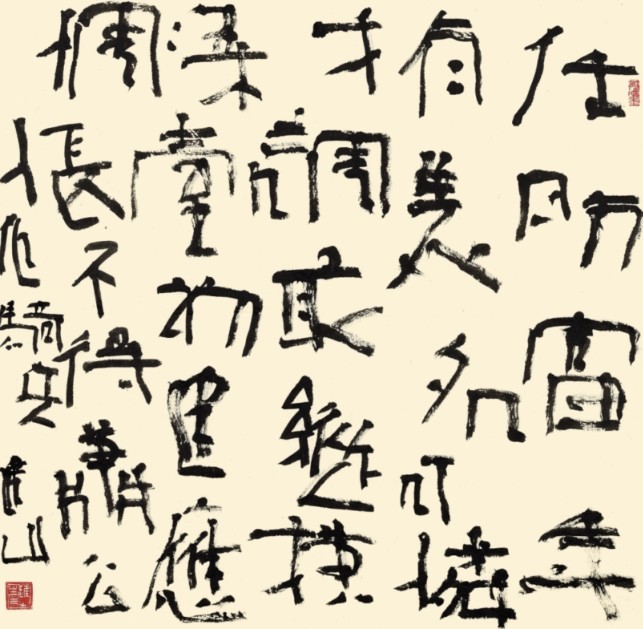 任昉當年
有美名可憐
才調最縱橫
梁臺初建應
惆悵不得蕭公
作騎兵 山